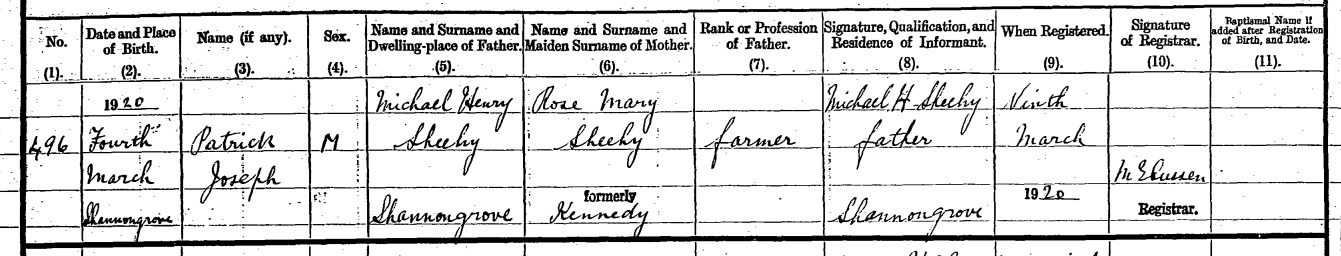 No. Date and Place Name (if any). Sex. Name and Surname and Name and Surname and Rank or Profession Signature, Qualification, and When Registered. Signature Baptismal Name if
of Birth. Dwelling-place of Father. Maiden Surname of Mother. of Father. Residence of Informant. of Registrar. added after Registration
of Birth, and Date.
(1). (2). (3). (4). (5). (6). (7). (8). (9). (10). (11).
1920 Michael Henry Rose Mary Michael H Sheehy Ninth
496 Fourth Patrick M Sheehy Sheehy farmer father March
March Joseph M E Cussen
formerly 1920
Shannongrove Shannongrove Kennedy Shannongrove Registrar.